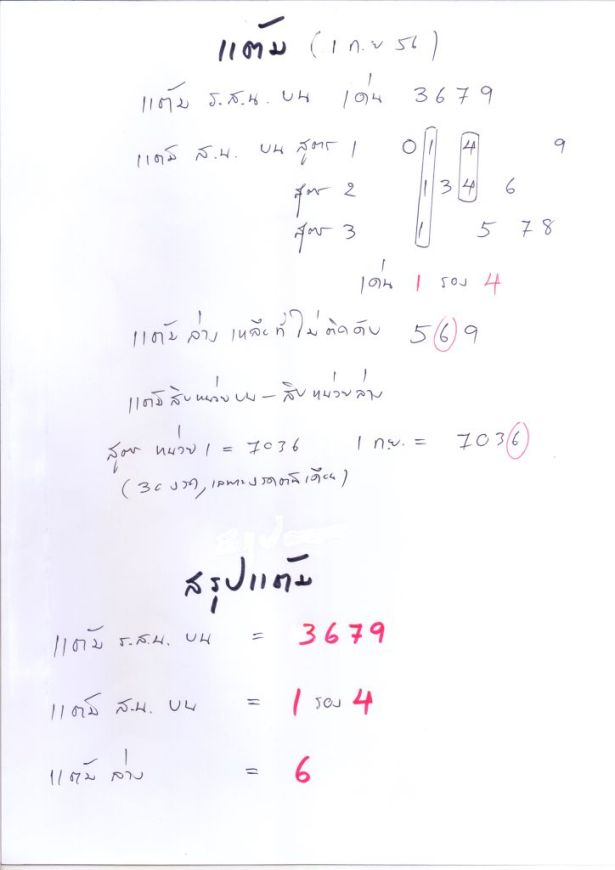 แต้ม (1 ก.ย 56)
แต้ม ร.ส.น. บน เด่น 3679
แต้ม ส.น. บน สูตร 1 0 1 4 9
สูตร 2 1 3 4 6
สูตร 3 1 5 7 8
เด่น 1 รอง 4
แต้ม ล่าง เหลือที่ไม่ติดดับ 5 6 9
แต้มสิบหน่วยบน - สิบหน่วยล่าง
สูตร หน่วย 1 = 7036 1 ก.ย. = 7036
งวด, เฉพาะงวดต้นเดือน)
สรุปแต้ม
แต้ม ร.ส.น. บน = 3679
แต้ม ส.น. บน = 1 รอง 4
แต้ม ล่าง = 6